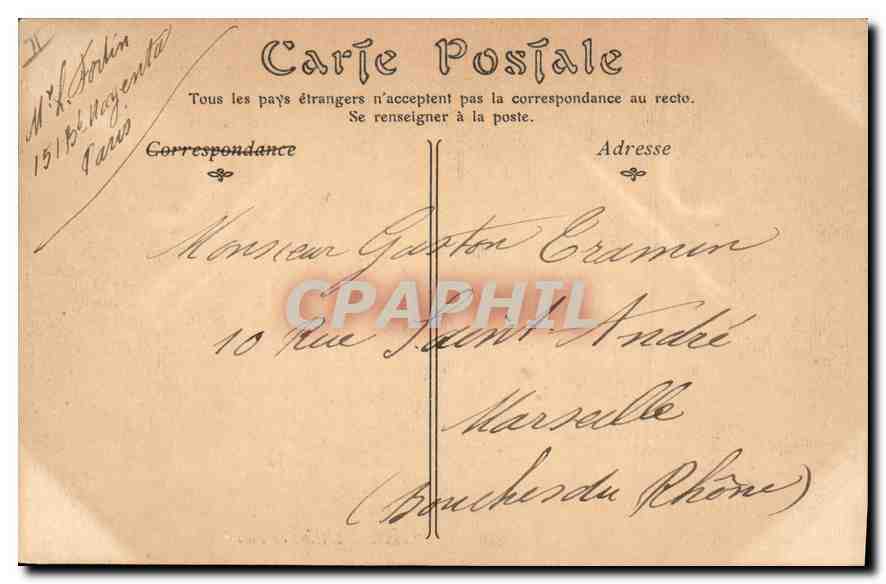 II
Mr L. Fortin
151 Bd Magenta
Paris
Carte Postale
Tous les pays étrangers n'acceptent pas la correspondance au recto.
Se renseigner à la poste.
Correspondance
Adresse
Monsieur Gaston Eramin
CPAPHIL
10 Rue Saint André
Marseille
(Bouches du Rhône)